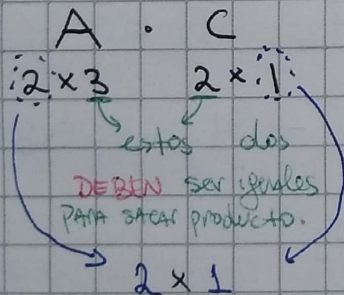 A · C
2 × 3 2 × 1
estos dos
DEBEN ser iguales
PARA sacar producto.
2 × 1